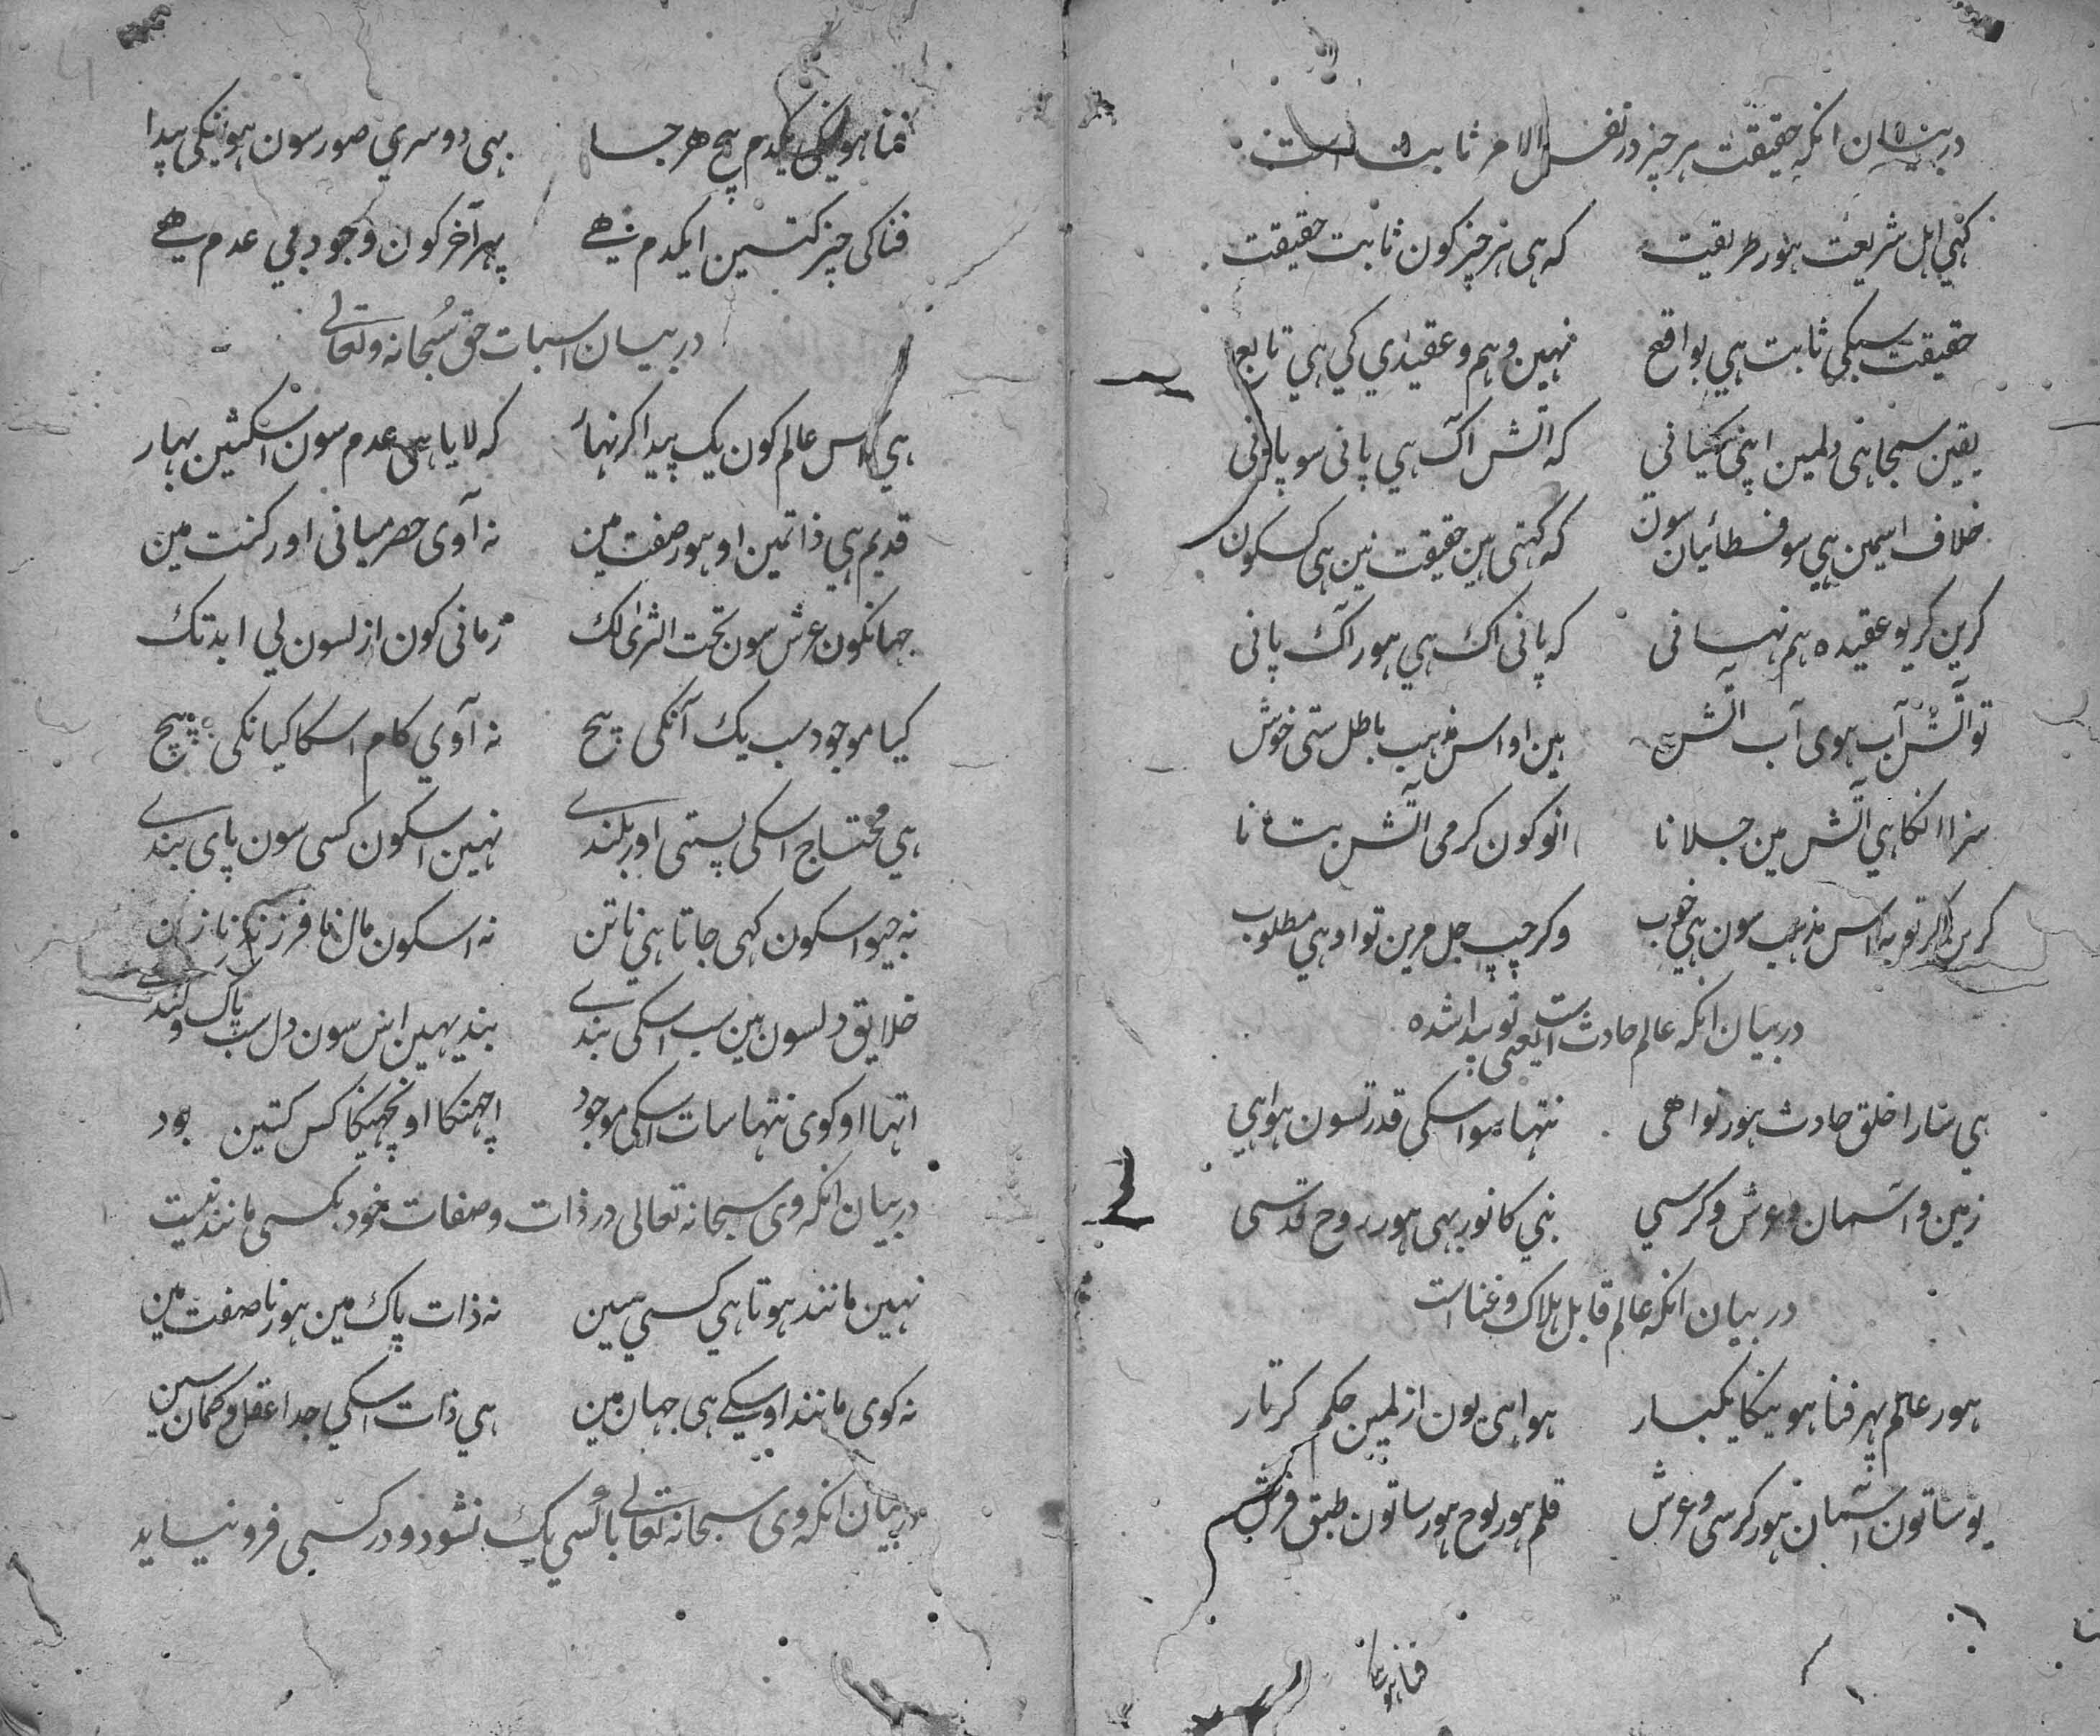 در بیان انکه حقیقت هر چیز در نفس الامر ثابت است
کهی اهل شریعت هور طریقت که هی هر چیز کون ثابت حقیقت
حقیقت سبکی ثابت هی بواقع نهین وهم و عقیدی کی هی تابع
یقین سبجا هنی دلمین اپنی کیانی که اتش اک هی پانی سو پانی
خلاف اسمین هی سوفسطائیان سون که کهتی هین حقیقت نین هی کسکون
کرین کر یو عقیده هم نهسانی که پانی اک هی هور اک پانی
تو اتش آب هوی آب اتش هین او اس مذهب باطل ستی خوش
سزا انکا هی اتش مین جلانا انو کون کرمی اتش بتانا
کرین اکر توبه اس مذهب سون هی خوب وکر چپ جل مرین تو او هی مطلوب
در بیان انکه عالم حادث است یعنی نو پیدا شده
هی سارا خلق حادث هور نوا هی نتها سو اسکی قدرتسون هوا هی
زمین و اسمان و عرش و کرسی نبی کا نور بهی هور روح قدسی
در بیان انکه عالم قابل هلاک و فنا است
هور عالم پهر فنا هوینکا یکبار هوا هی یون ازلمین حکم کرتار
یو ساتون اسمان هور کرسی و عرش قلم هور لوح هور ساتون طبق فرش
فنا هویکی
فنا هویکی یکدم پیچ هر جسا بهی دوسری صور سون هوینکی پیدا
فنا کی چیز کتین ایکدم هے پهر آخر کون وجود بی عدم هے
در بیان اسبات حق سُبحانه و تعالی
هی اس عالم کون یک پیدا کرنهار که لایا هی عدم سون اسکتین بهار
قدیم هی ذاتمین او هور صفت مین نه آوی حصر میانی اور کنت مین
جهانکون عرش سون تحت الثری لک زمانی کون ازلسون لی ابد تک
کیا موجود سب یک آنکی پیچ نه آوی کام اسکا کیانکی پیچ
هی محتاج اسکی پستی اور بلندے نهین اسکون کسی سون پای بندے
نه جیو اسکون کهی جاتا هی نا تن نه اسکون مال نا فرزند نا زن
خلایق دلسون هین سب اسکی بندے بند یهین اس سون دل سب پاک و کندے
اتها او کوی نتها سات اسکی موجود اچهنکا او نچهنکا کس کتین بود
در بیان انکه وی سبحانه تعالی در ذات و صفات خود بکسی مانند نیست
نهین مانند هوتا هی کسی سین نه ذات پاک مین هور نا صفت مین
نه کوی مانند اوسکے هی جهان مین هی ذات اسکی جدا عقل و کمان سین
در بیان انکه وی سبحانه تعالی باکسی یک نشود و در کسی فرو نیاید